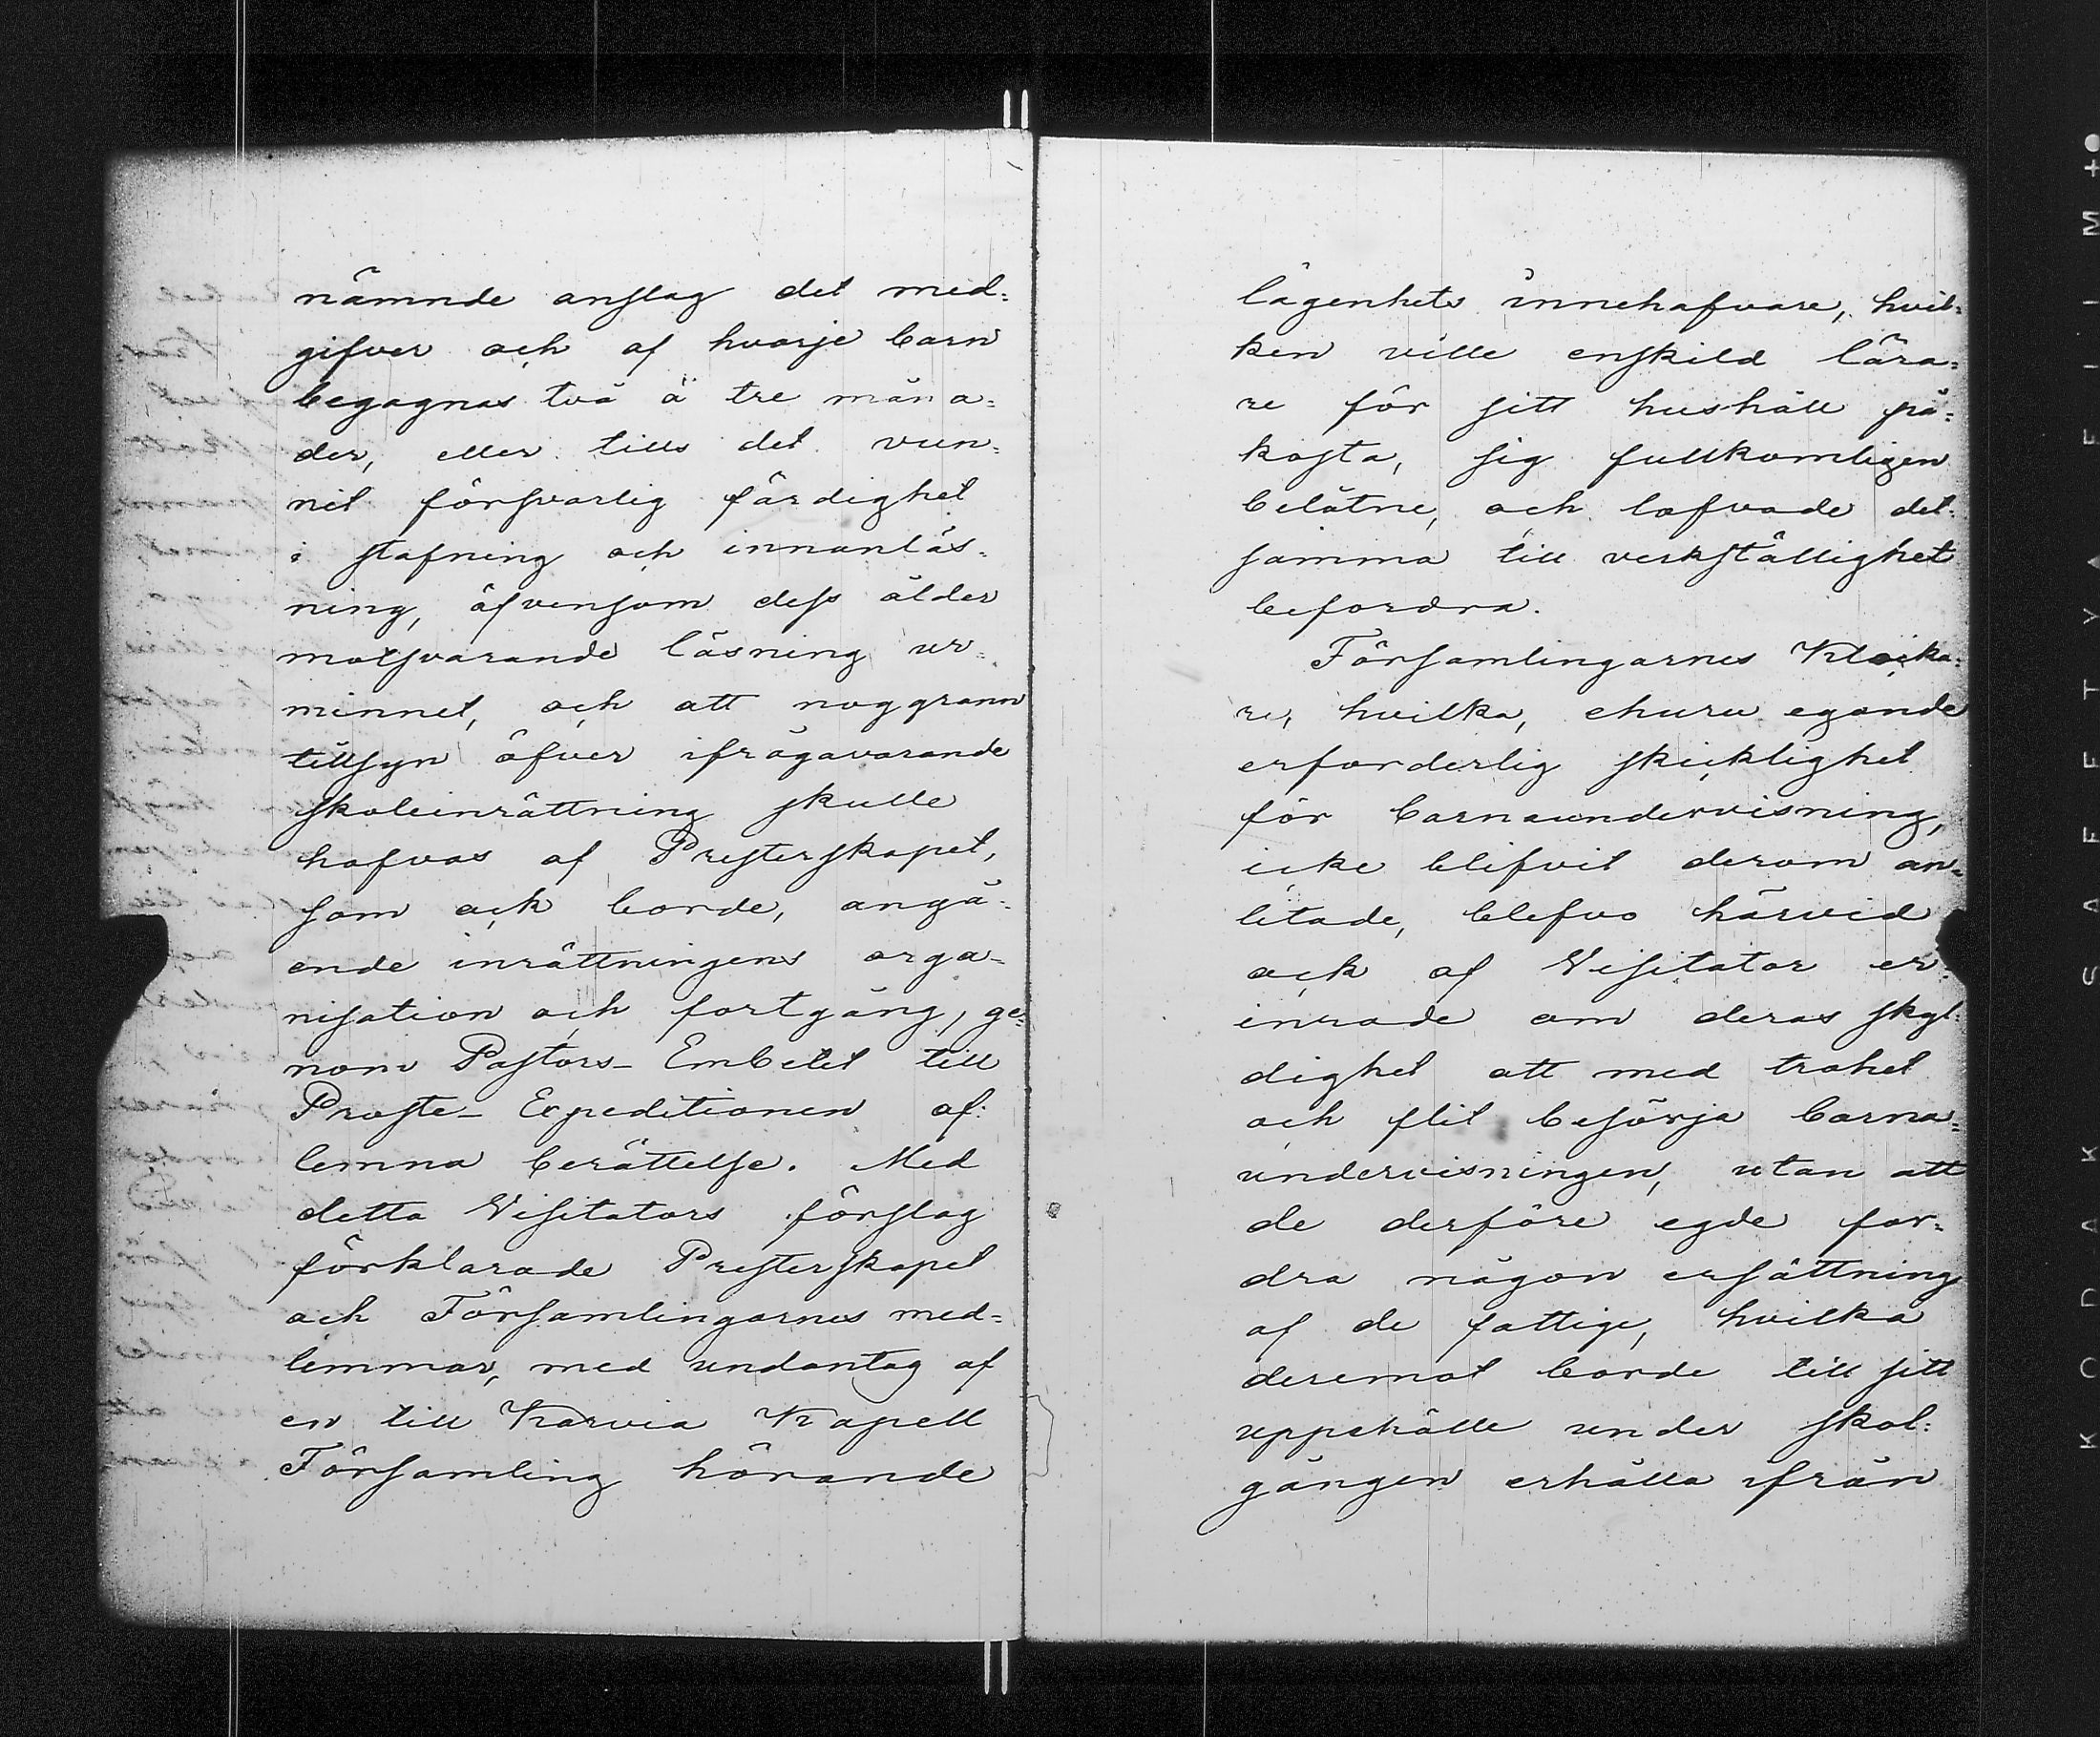 nämnde anslag det med=
gifver och af hvarje barn
begagnas två à tre måna=
der, eller tills det vun=
nit försvarlig färdighet
i stafning och innanläs=
ning, äfvensom dess ålder
motsvarande läsning ur
minnet, och att noggrann
tillsyn öfver ifrågavarande
skoleinrättning skulle
hafvas af Presterskapet,
som ock borde, angå=
ende inrättningens orga=
nisation och fortgång, ge=
nom Pastors-Embetet till
Proste-Expeditionen af=
lemna berättelse. Med
detta Visitators förslag
förklarade Presterskapet
och Församlingarnes med=
lemmar, med undantag af
en till Karvia Kapell
Församling hörande
lägenhets innehafvare, hvil=
ken ville enskild lära=
re för sitt hushåll på=
kosta, sig fullkomligen
belåtne, och lofvade det=
samma till verkställighet
befordra.
Församlingarnes Klocka=
re, hvilka, ehuru egande
erforderlig skicklighet
för barnaundervisning,
icke blifvit derom an=
litade, blefvo härvid
ock af Visitator er=
inrade om deras skyl=
dighet att med trohet
och flit besörja barna=
undervisningen, utan att
de derföre egde for=
dra någon ersättning
af de fattige, hvilka
deremot borde till sitt
uppehälle under skol=
gången erhålla ifrån
KODAK SAFETY A FILM